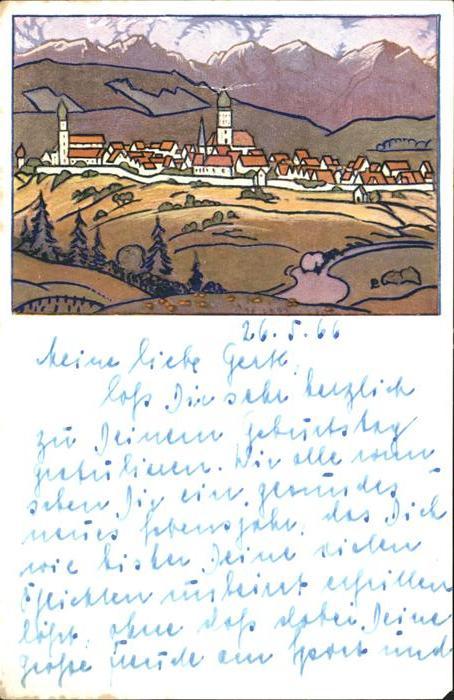 26.5.66
Meine liebe Gerti,
laß Dir sehr herzlich
zu Deinem Geburtstag
gratulieren. Wir alle wün-
schen Dir ein gesundes
neues Lebensjahr, das Dich
wie bisher Deine vielen
Pflichten unbeirrt erfüllen
läßt, ohne daß dabei Deine
große Freude am Sport und